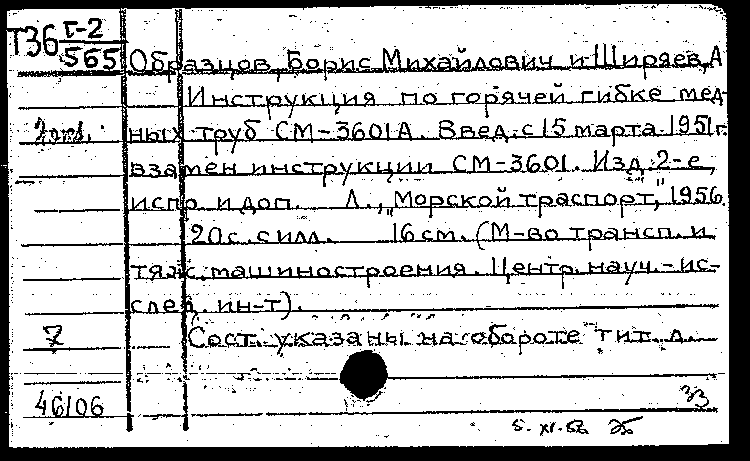 Т36 Г-2
565 Образцов, Борис Михайлович и Ширяев, А
Инструкция по горячей гибке мед-
2отд. ных труб СМ-3601А. Введ. с 15 марта 1951г.
взамен инструкции СМ-3601. Изд. 2-е,
испр. и доп. Л., „Морской траспорт", 1956
20 с. с илл. 16 см. (М-во трансп. и
тяж. машиностроения. Центр. науч.-ис-
след. ин-т).
7 Сост. указаны на обороте тит. л.
46106 33
5.XI.56